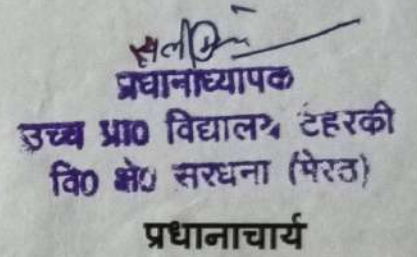 प्रधानाध्यापक
उच्च प्रा0 विद्यालय टेहरकी
वि0 क्षे0 सरधना (मेरठ)
प्रधानाचार्य